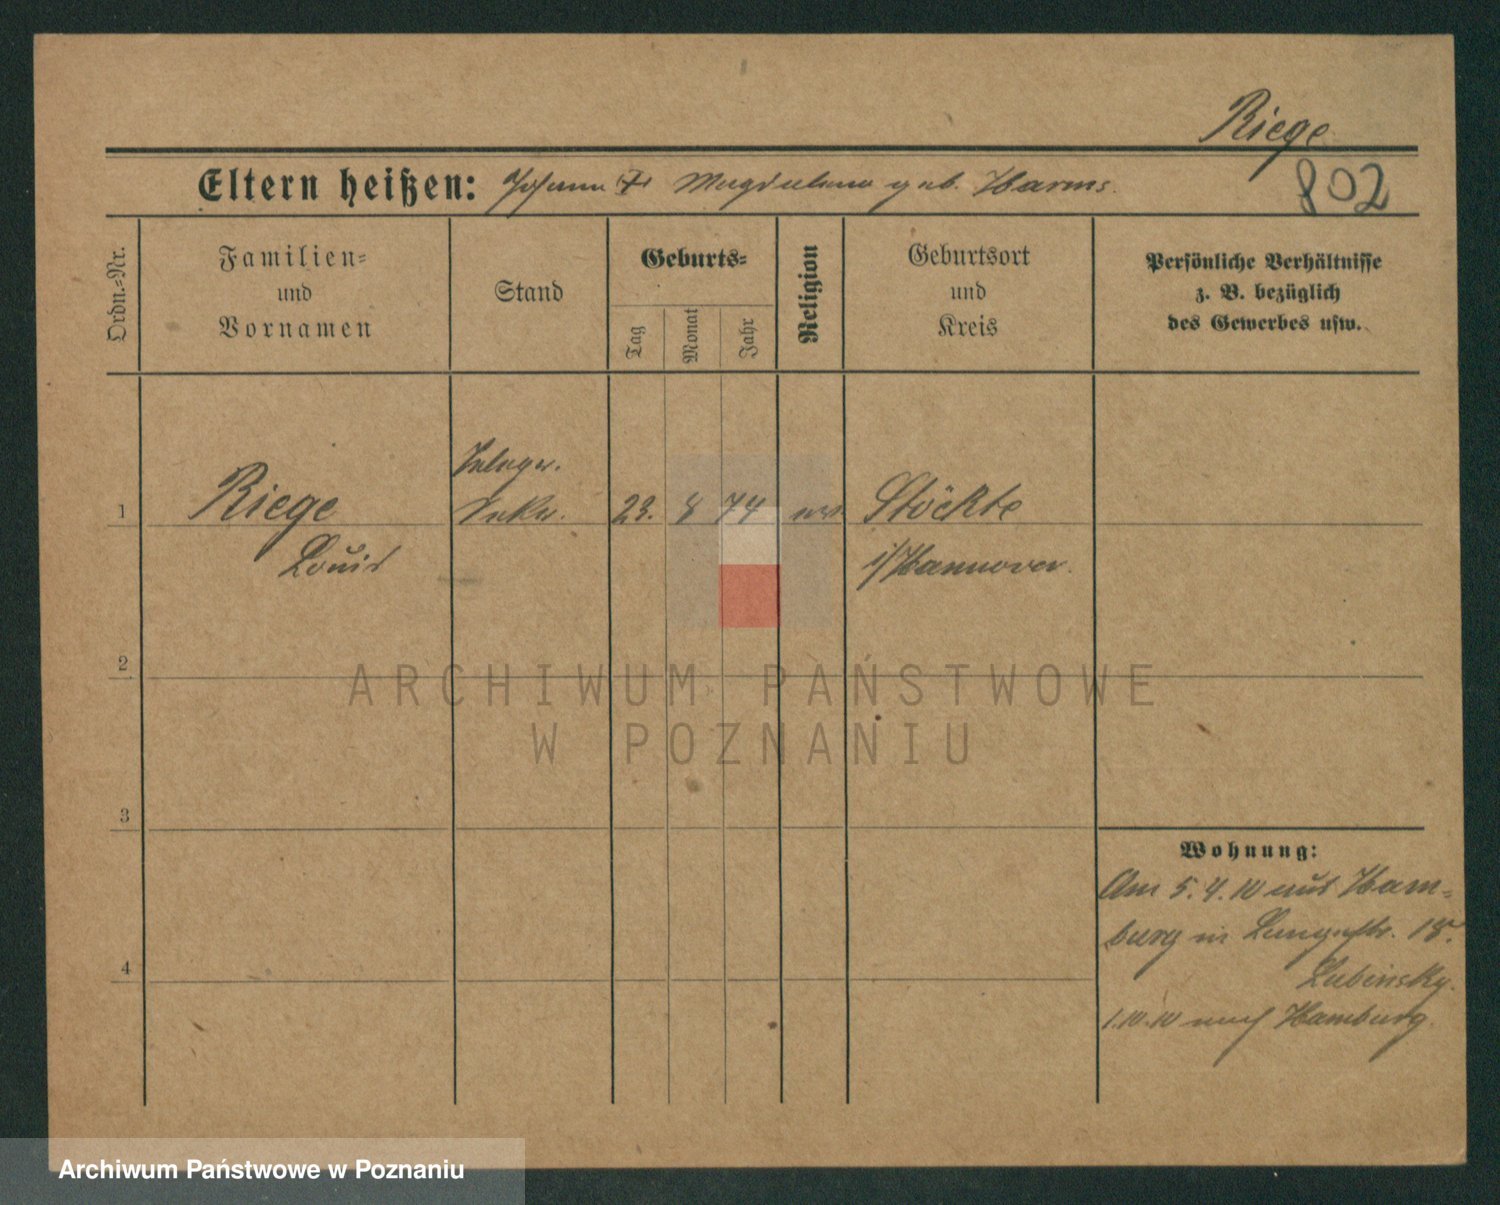 Riege
802
Eltern heißen: Johann Magdalena geb. Harms.
Ordn.-Nr.
Familien-
und
Vornamen
Stand
Geburts-
Tag
Monat
Jahr
Religion
Geburtsort
und
Kreis
Persönliche Verhältnisse
z. B. bezüglich
des Gewerbes usw.
Telegr.
1 Riege Sekr. 23. 8 74 ev. Stöckte
Louis i/Hannover.
2
3
4
Wohnung:
Am 5.4.10 aus Ham-
burg in Langestr. 18.
Lubinsky.
1.10.10 nach Hamburg.
ARCHIWUM PAŃSTWOWE
W POZNANIU
Archiwum Państwowe w Poznaniu